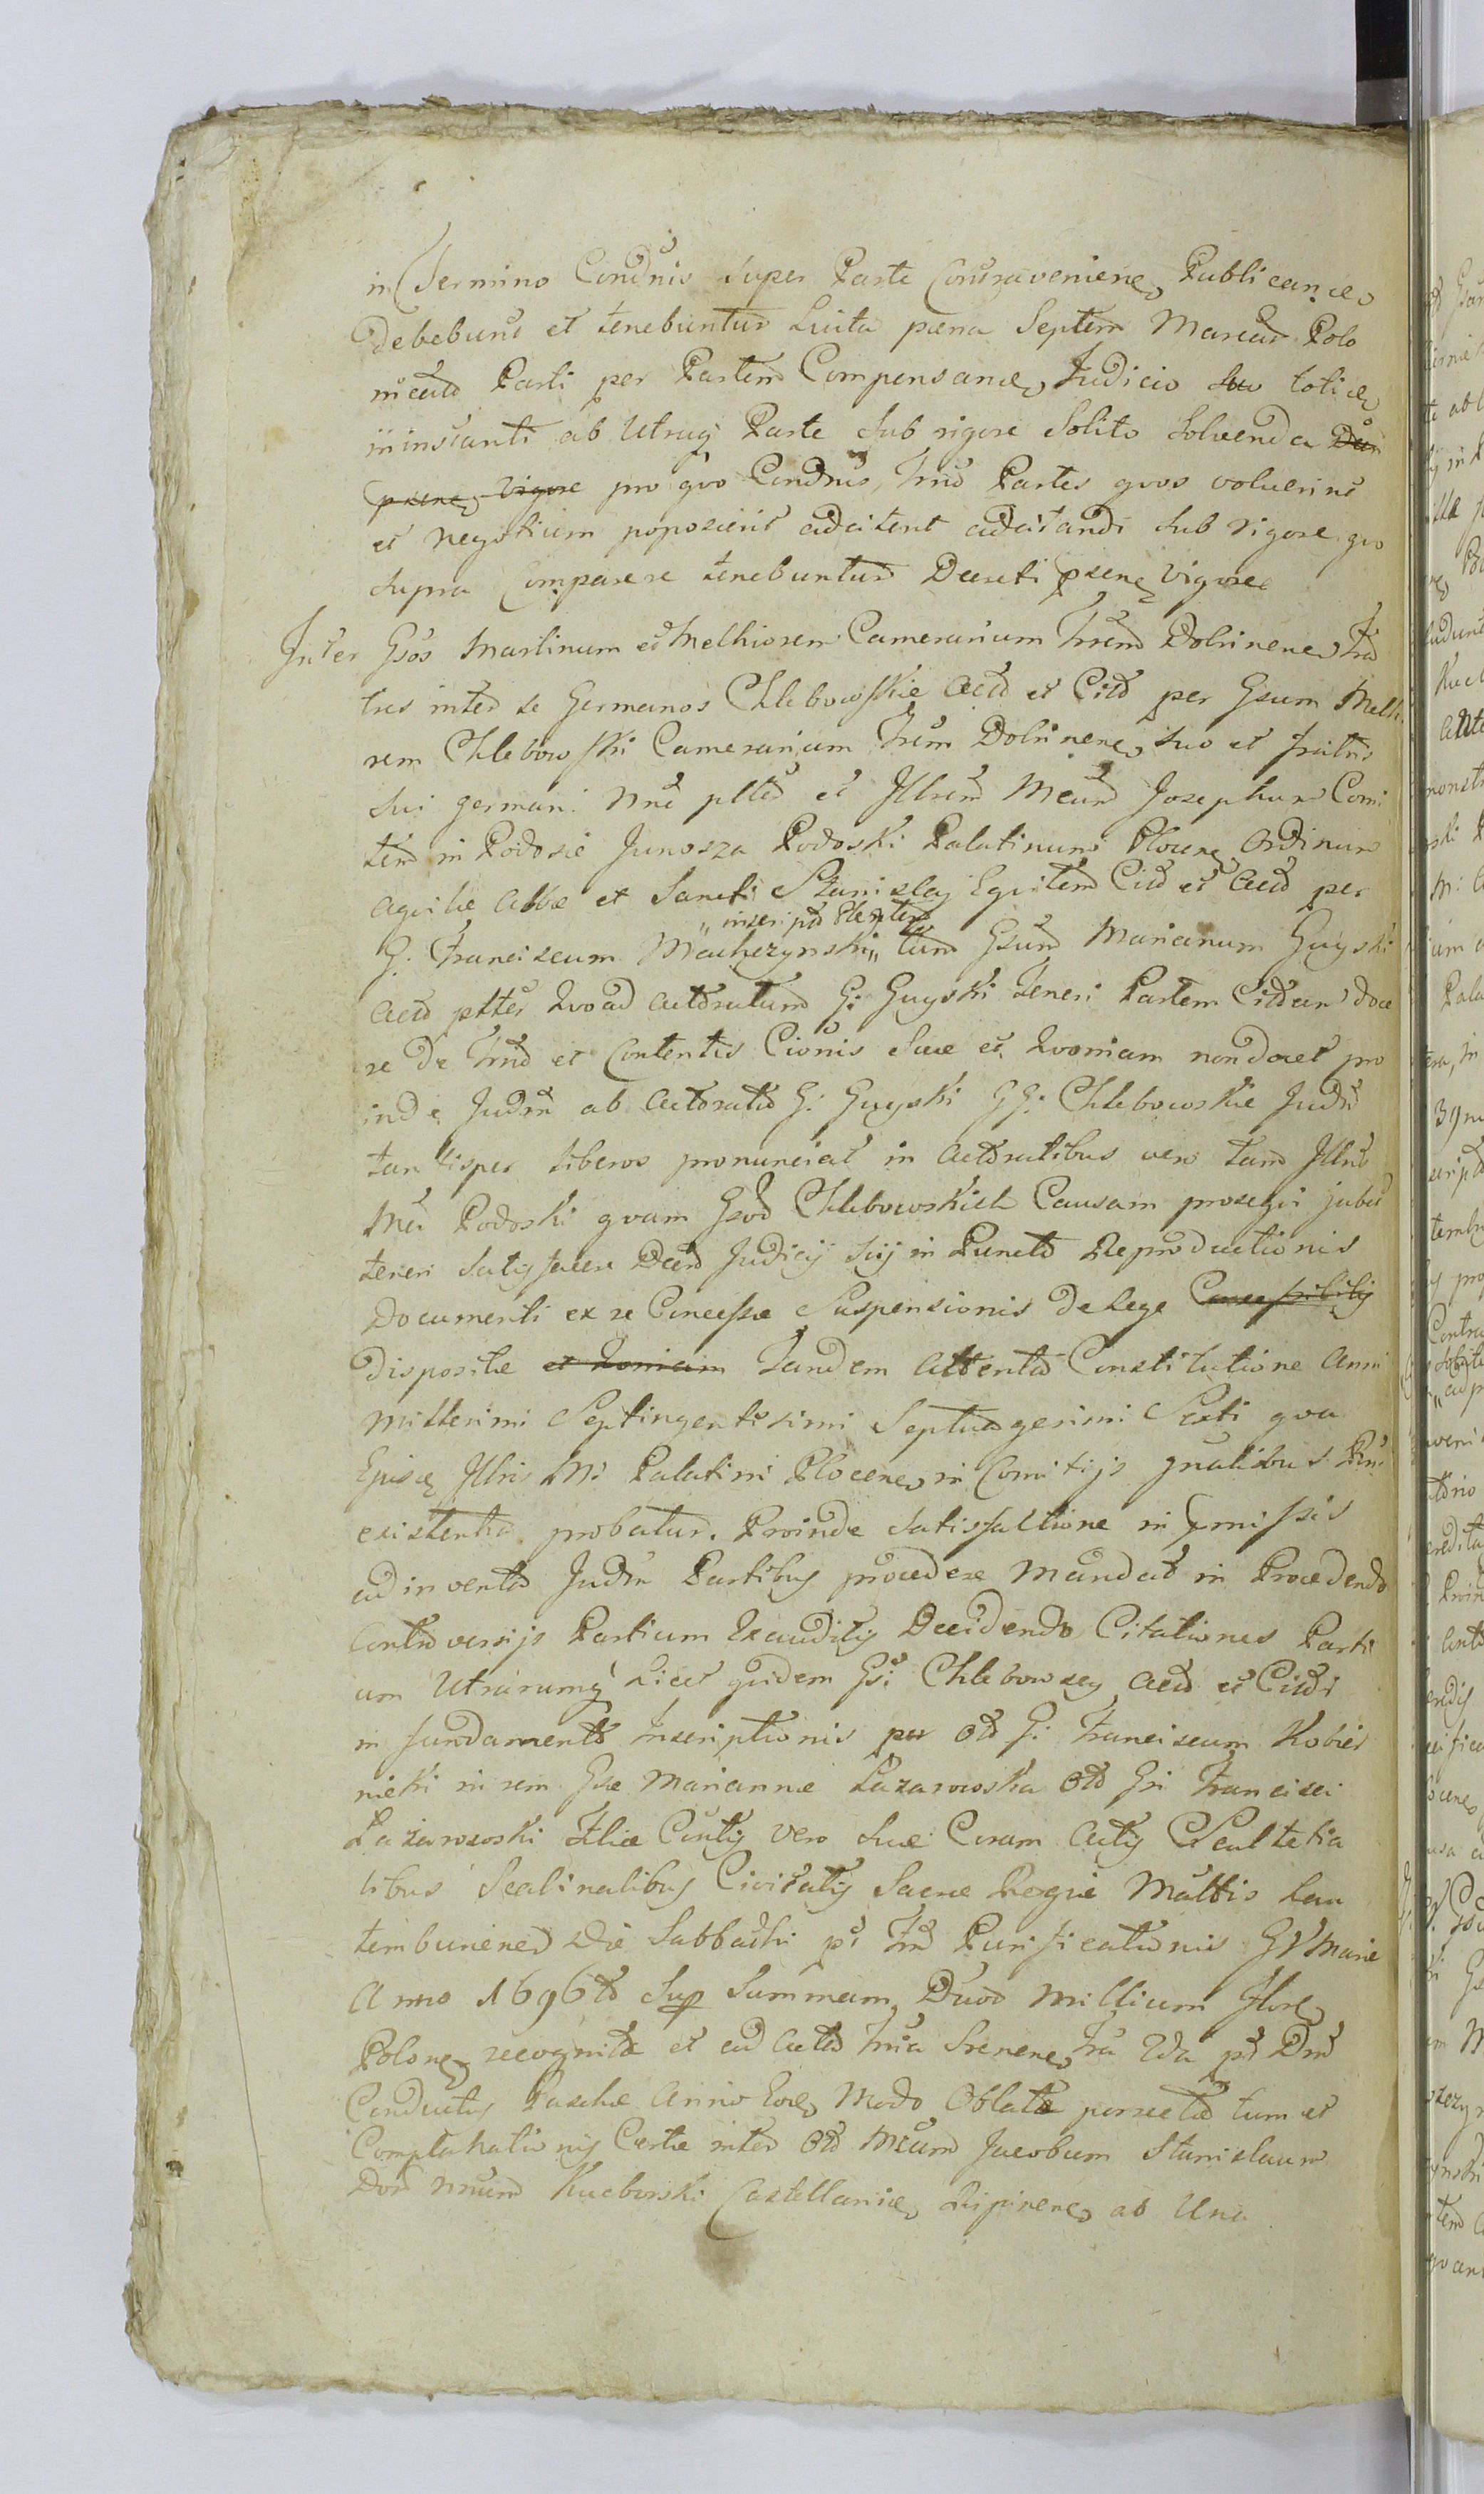 in Termino Condnis super Parte Contraveniene Publicanae
debebunt et tenebuntur Luita paena Septem Marcar Polo
nicald Parti per Partem Compensanae, Judicio suo toties
in instanti ab Utraq Parte sub rigore Solito Solvenda
praene vigore pro quo Condnis, Trno Partes quos voluerint
et negotium poposcerit adcitent adcitandi sub rigore quo
supra Comparere tenebuntur Decreti praene vigore
Inter Gsos Martinum et Melhiorem Camerarium Trrem Dobrinene Fra
tres inter se Germanos Chlebowskie Acto et Citt per Gsum Melh
rem Chlebowski Camerarium Trem Dobrinene, suo et fratris
sui germani nne pltes et Jllrem Mcum Josephum Comi
tem in Podosie Junosza Podoski Palatinum Plocene Ordinum
Aquilae Albae et Sancti Stanislai Equitem Citt et Actt per
G. Franciscum Machczynski „ tum Gsum Marianum Guyski
„ inscript Plenten
Actt pltes Quoad Acttratum G: Guyski teneri Partem Cittam doce
re de Trno et Contentis Cionis suae et Quoniam non docet pro
inde Judm ab Acttoratu G: Guyski GG: Chlebowskie Judu
tantisper liberos pronunciat in Acttratibus vero tam Jllris
Mci Podoski quam Gsod Chlebowskich Causam prosequi jubet
teneri satisfacere Dcto Judicij sij in Puncto Reproductionis
Documenti ex re Concessae Suspensionis de Lege
dispositae et Quoniam Tandem Attenta Constitutione Anni
Millesimi Septingentesimi Septuagesimi Sexti qua
Jllris M: Palatini Plocene in Comitijs gnalibus
existentia probatur. Proinde satisfactione in praemissis
adinventa Judm Partibus procedere mandat in Procedendo
Controversijs Partium Exauditis Decidendo Citationes Parti
um Utrarumq Licet quidem Gsi Chlebowscy Actt et Citti
in fundamento Inscriptionis per Ott G: Franciscum Kobier
nicki in rem Gsae Mariannae Lazarowska Ott Gsi Francisci
Lazarowski Filiae Contis vero suae Coram Actis Scultetia
libus Scabinalibus Civitatis Sacrae Regiae Mattis Lau
temburiened Die Sabbathi pt Ftd Purificationis GV Mariae
Anno 1696to Sup Summam Duod Millium Flore
Polone recognitae et ad Acta Trria Srenene Fra 2da pt Dnd
Conductus Paschae Anno Eod Modo Oblatae porrectae tum et
Complanationis Certae inter Ott Mcum Jacobum Stanislaum
Don nnum Kuczborski Castellanie Ripinene ab Una